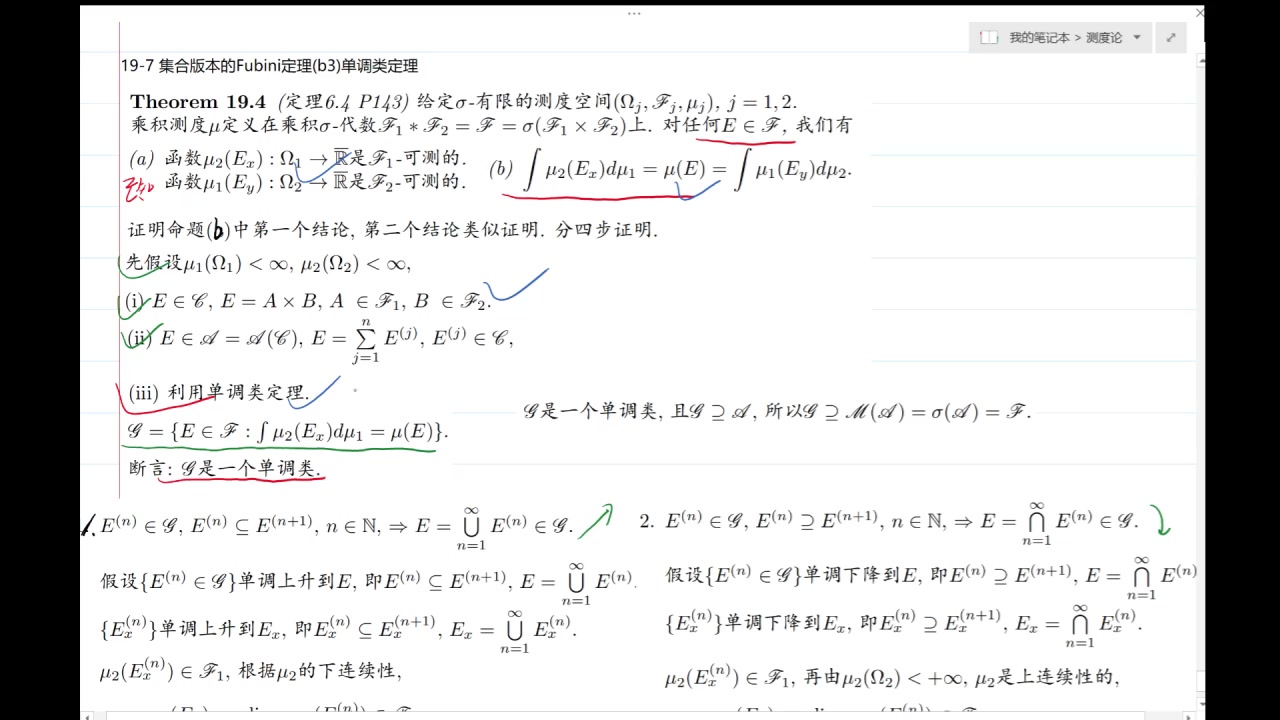 我的笔记本 > 测度论
19-7 集合版本的Fubini定理(b3)单调类定理
Theorem 19.4 (定理6.4 P143) 给定σ-有限的测度空间(Ω_j, ℱ_j, μ_j), j = 1, 2.
乘积测度μ定义在乘积σ-代数ℱ_1 * ℱ_2 = ℱ = σ(ℱ_1 × ℱ_2)上. 对任何E ∈ ℱ, 我们有
(a) 函数μ_2(E_x) : Ω_1 → ℝ̅是ℱ_1-可测的.
函数μ_1(E_y) : Ω_2 → ℝ̅是ℱ_2-可测的.
(b) ∫ μ_2(E_x)dμ_1 = μ(E) = ∫ μ_1(E_y)dμ_2.
证明命题(b)中第一个结论, 第二个结论类似证明. 分四步证明.
先假设μ_1(Ω_1) < ∞, μ_2(Ω_2) < ∞,
(i) E ∈ 𝒞, E = A × B, A ∈ ℱ_1, B ∈ ℱ_2.
(ii) E ∈ 𝒜 = 𝒜(𝒞), E = ∑_{j=1}^{n} E^{(j)}, E^{(j)} ∈ 𝒞,
(iii) 利用单调类定理.
𝒢是一个单调类, 且𝒢 ⊇ 𝒜, 所以𝒢 ⊇ ℳ(𝒜) = σ(𝒜) = ℱ.
𝒢 = {E ∈ ℱ : ∫ μ_2(E_x)dμ_1 = μ(E)}.
断言: 𝒢是一个单调类.
1. E^{(n)} ∈ 𝒢, E^{(n)} ⊆ E^{(n+1)}, n ∈ ℕ, ⇒ E = ⋃_{n=1}^{∞} E^{(n)} ∈ 𝒢.
假设{E^{(n)} ∈ 𝒢}单调上升到E, 即E^{(n)} ⊆ E^{(n+1)}, E = ⋃_{n=1}^{∞} E^{(n)}.
{E_x^{(n)}}单调上升到E_x, 即E_x^{(n)} ⊆ E_x^{(n+1)}, E_x = ⋃_{n=1}^{∞} E_x^{(n)}.
μ_2(E_x^{(n)}) ∈ ℱ_1, 根据μ_2的下连续性,
2. E^{(n)} ∈ 𝒢, E^{(n)} ⊇ E^{(n+1)}, n ∈ ℕ, ⇒ E = ⋂_{n=1}^{∞} E^{(n)} ∈ 𝒢.
假设{E^{(n)} ∈ 𝒢}单调下降到E, 即E^{(n)} ⊇ E^{(n+1)}, E = ⋂_{n=1}^{∞} E^{(n)}
{E_x^{(n)}}单调下降到E_x, 即E_x^{(n)} ⊇ E_x^{(n+1)}, E_x = ⋂_{n=1}^{∞} E_x^{(n)}.
μ_2(E_x^{(n)}) ∈ ℱ_1, 再由μ_2(Ω_2) < +∞, μ_2是上连续性的,